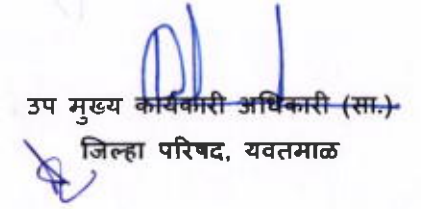 उप मुख्य कार्यकारी अधिकारी (सा.)
जिल्हा परिषद, यवतमाळ